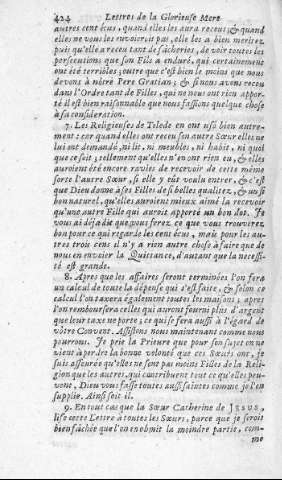 424 Lettres de la Glorieuse Mere
autres cent écus, quand elles les aura receus; & quand
elles ne vous les envoiroient pas, elle les a bien meritez
puis qu'elle a receu tant de fâcheries, de voir toutes les
persecutions que son Fils a enduré, qui certainement
ont été terribles; outre que c'est bien le moins que nous
devons à nôtre Pere Gratian; & si nous avions receu
dans l'Ordre tant de Filles, qui ne nous ont rien appor-
té il est bien raisonnable que nous fassions quelque chose
à sa consideration.
7. Les Religieuses de Tolede en ont usé bien autre-
ment: car quand elles ont receu son autre Sœur elles ne
lui ont demandé, ni lit, ni meubles, ni habit, ni quoi
que ce soit; tellement qu'elles n'en ont rien eu, & elles
auroient été encore ravies de recevoir de cette même
sorte l'autre Sœur, si elle y eût voulu entrer, & c'est
que Dieu donne à ses Filles de si belles qualitez, & un si
bon naturel, qu'elles auroient mieux aimé la recevoir
qu'une autre Fille qui auroit apporté un bon dot. Je
vous ai déja dit que vous ferez ce que vous trouverez
bon pour ce qui regarde les cent écus, mais pour les au-
tres trois cens il n'y a rien autre chose à faire que de
nous en envoier la Quittance, d'autant que la necessi-
té est grande.
8. Apres que les affaires seront terminées l'on fera
un calcul de toute la dépense qui s'est faite, & selon ce
calcul l'on taxera également toutes les maisons; apres
l'on remboursera celles qui auront fourni plus d'argent
que leur taxe ne porte; ce qui se fera aussi à l'égard de
vôtre Convent. Assistons nous maintenant comme nous
pourrons. Je prie la Prieure que pour son sujet on ne
vient à perdre la bonne volonté que ces Sœurs ont, je
suis asseurée qu'elles ne sont pas moins Filles de la Reli-
gion que les autres, qui contribuent tout ce qu'elles peu-
vent, Dieu vous fasse toutes aussi saintes comme je l'en
supplie. Ainsi soit il.
9. En tout cas que la Sœur Catherine de JESUS,
lise cette Lettre à toutes les Sœurs, parce que je serois
bien fâchée que l'on en obmit la moindre partie, com-
me